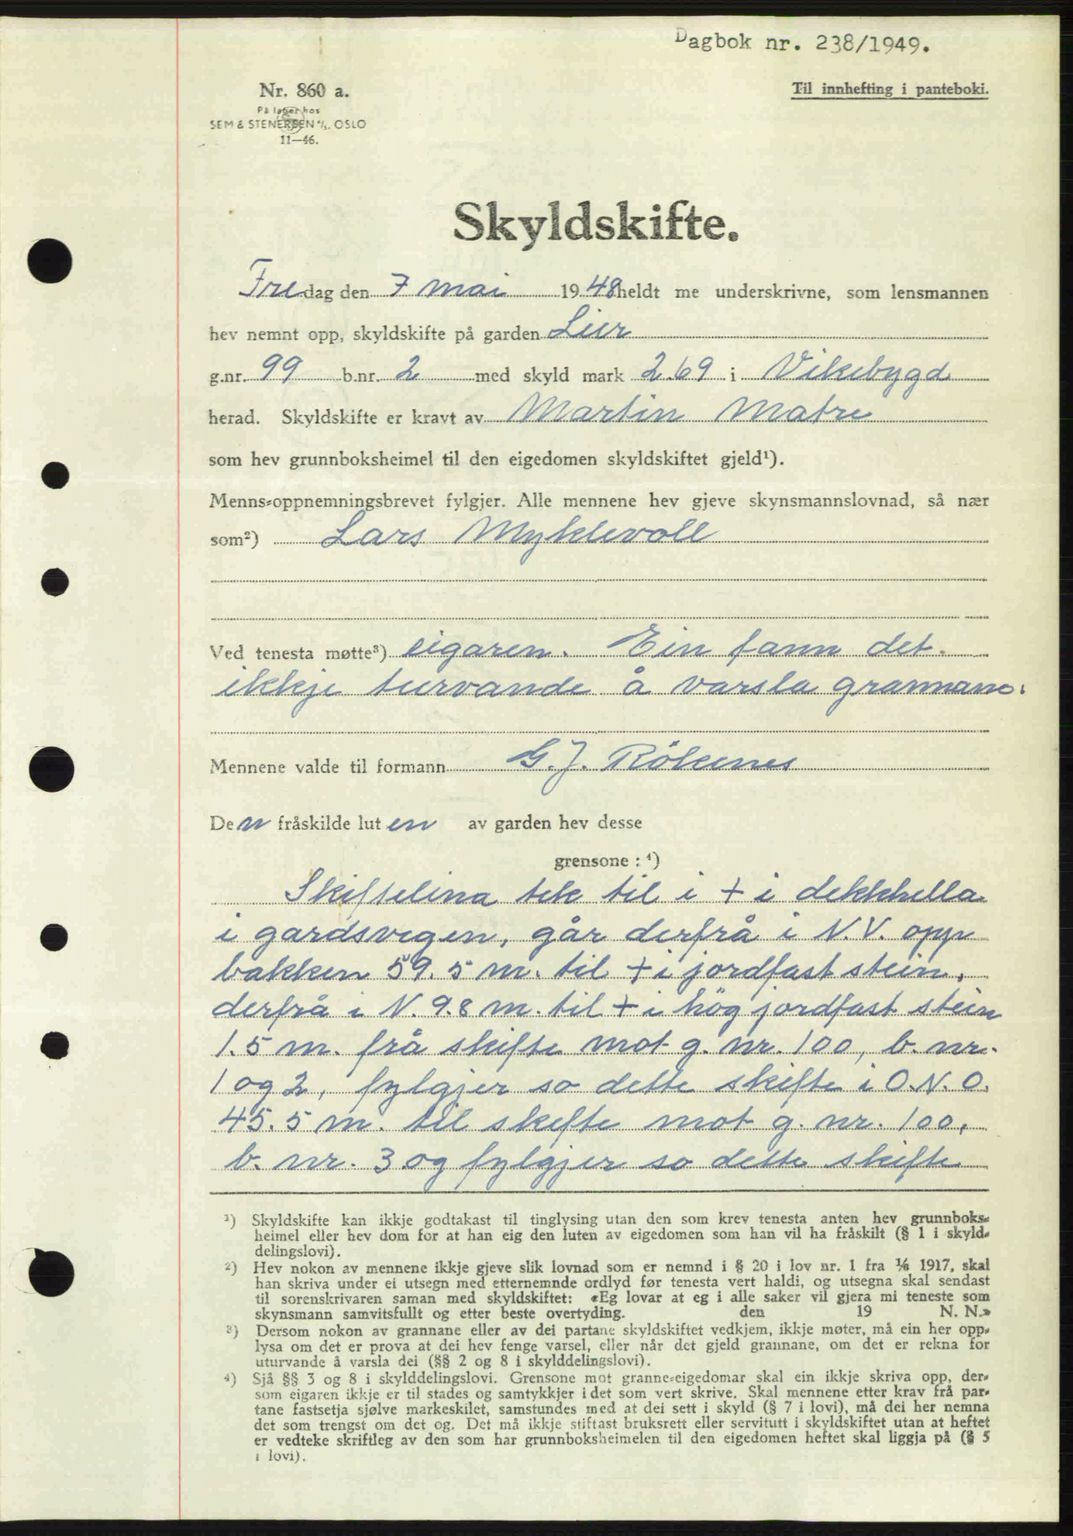 Dagbok nr. 238/1949.
Nr. 860 a.
Til innhefting i panteboki.
På lager hos
SEM & STENERSEN A/S. OSLO
11—46.
Skyldskifte.
Fredag den 7 mai 1948 heldt me underskrivne, som lensmannen
hev nemnt opp, skyldskifte på garden Lier
g.nr. 99 b.nr. 2 med skyld mark 2.69 i Vikebygd
herad. Skyldskifte er kravt av Martin Matre
som hev grunnboksheimel til den eigedomen skyldskiftet gjeld¹).
Menns-oppnemningsbrevet fylgjer. Alle mennene hev gjeve skynsmannslovnad, så nær
som²) Lars Myklevoll
Ved tenesta møtte³) eigaren. Ein fann det
ikkje turvande å varsla grannane.
Mennene valde til formann G. J. Rökenes
Den fråskilde luten av garden hev desse
grensone : ⁴)
Skiftelina tek til i + i dekkhella
i gardsvegen, går derfrå i N.V. opp
bakken 59.5 m. til + i jordfast stein,
derfrå i N. 9.8 m. til + i hög jordfast stein
1.5 m. frå skifte mot g. nr. 100, b. nr.
1 og 2, fylgjer so dette skifte i O.N.O.
45.5 m. til skifte mot g. nr. 100,
b. nr. 3 og fylgjer so dette skifte
¹) Skyldskifte kan ikkje godtakast til tinglysing utan den som krev tenesta anten hev grunnboks-
heimel eller hev dom for at han eig den luten av eigedomen som han vil ha fråskilt (§ 1 i skyld-
delingslovi).
²) Hev nokon av mennene ikkje gjeve slik lovnad som er nemnd i § 20 i lov nr. 1 fra ¹/₆ 1917, skal
han skriva under ei utsegn med etternemnde ordlyd før tenesta vert haldi, og utsegna skal sendast
til sorenskrivaren saman med skyldskiftet: «Eg lovar at eg i alle saker vil gjera mi teneste som
skynsmann samvitsfullt og etter beste overtyding. den 19 N. N.»
³) Dersom nokon av grannane eller av dei partane skyldskiftet vedkjem, ikkje møter, må ein her opp-
lysa om det er prova at dei hev fenge varsel, eller når det gjeld grannane, om det er rekna for
uturvande å varsla dei (§§ 2 og 8 i skylddelingslovi).
⁴) Sjå §§ 3 og 8 i skylddelingslovi. Grensone mot granne-eigedomar skal ein ikkje skriva opp, der-
som eigaren ikkje er til stades og samtykkjer i det som vert skrive. Skal mennene etter krav frå par-
tane fastsetja sjølve markeskilet, samstundes med at dei sett i skyld (§ 7 i lovi), må dei her nemna
det som trengst om det og. Det må ikkje stiftast bruksrett eller servitutt i skyldskiftet utan at heftet
er vedteke skriftleg av den som har grunnboksheimelen til den eigedomen heftet skal liggja på (§ 5
i lovi).